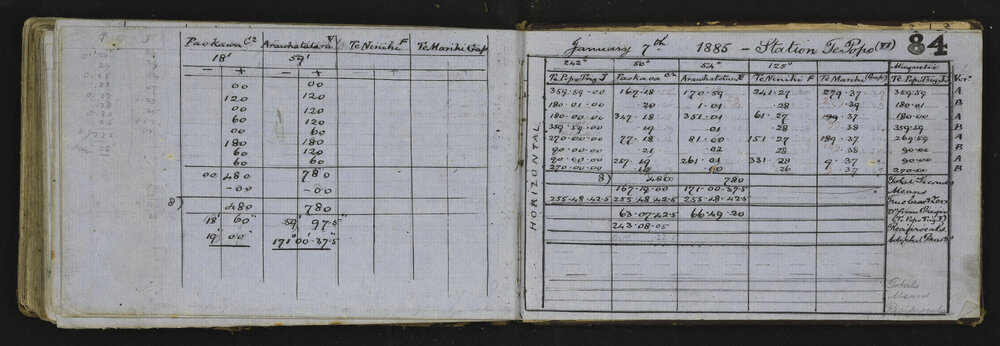 Paokawa C2 Arauhatatara V Te Niniki F Te Mariki Gap
18' 59'
- + - + - + - +
00 00
120 120
120 120
60 120
00 60
180 180
60 120
60 60
00 480 780
-00 -00
8) 480 780
18' 60" 59' 97.5"
19' 00" 171° 00' 37.5"
January 7th 1885 - Station Te Popo (VI) 84
242° 50° 54° 125° Magnetic
Te Popo Trig J Paokava C2 Arauhatatara V Te Niniki F Te Mariki (Gap) Te Popo Trig J. Ver
HORIZONTAL
359.59.00 167.18 170.59 241.27 279.37 359.59 A
180.01.00 .20 1.01 .28 .39 180.01 B
180.00.00 347.18 351.01 61.27 99.37 180.00 A
359.59.00 .19 .01 .28 .38 359.59 B
270.00.00 77.18 81.00 151.27 189.37 269.59 A
90.00.00 .21 .02 .28 .38 90.00 B
90.00.00 257.19 261.01 331.28 9.37 90.00 A
270.00.00 .01 .26 .37 270.00 B
8) 480 780 Total Seconds
167.19.00 171.00.37.5 Means
255.48.42.5 255.48.42.5 255.48.42.5
63.07.42.5 66.49.20 from Origin
(Te Popo Trig J)
243.08.05 Reciprocals
Adopted
Totals
Means
Reciprocals